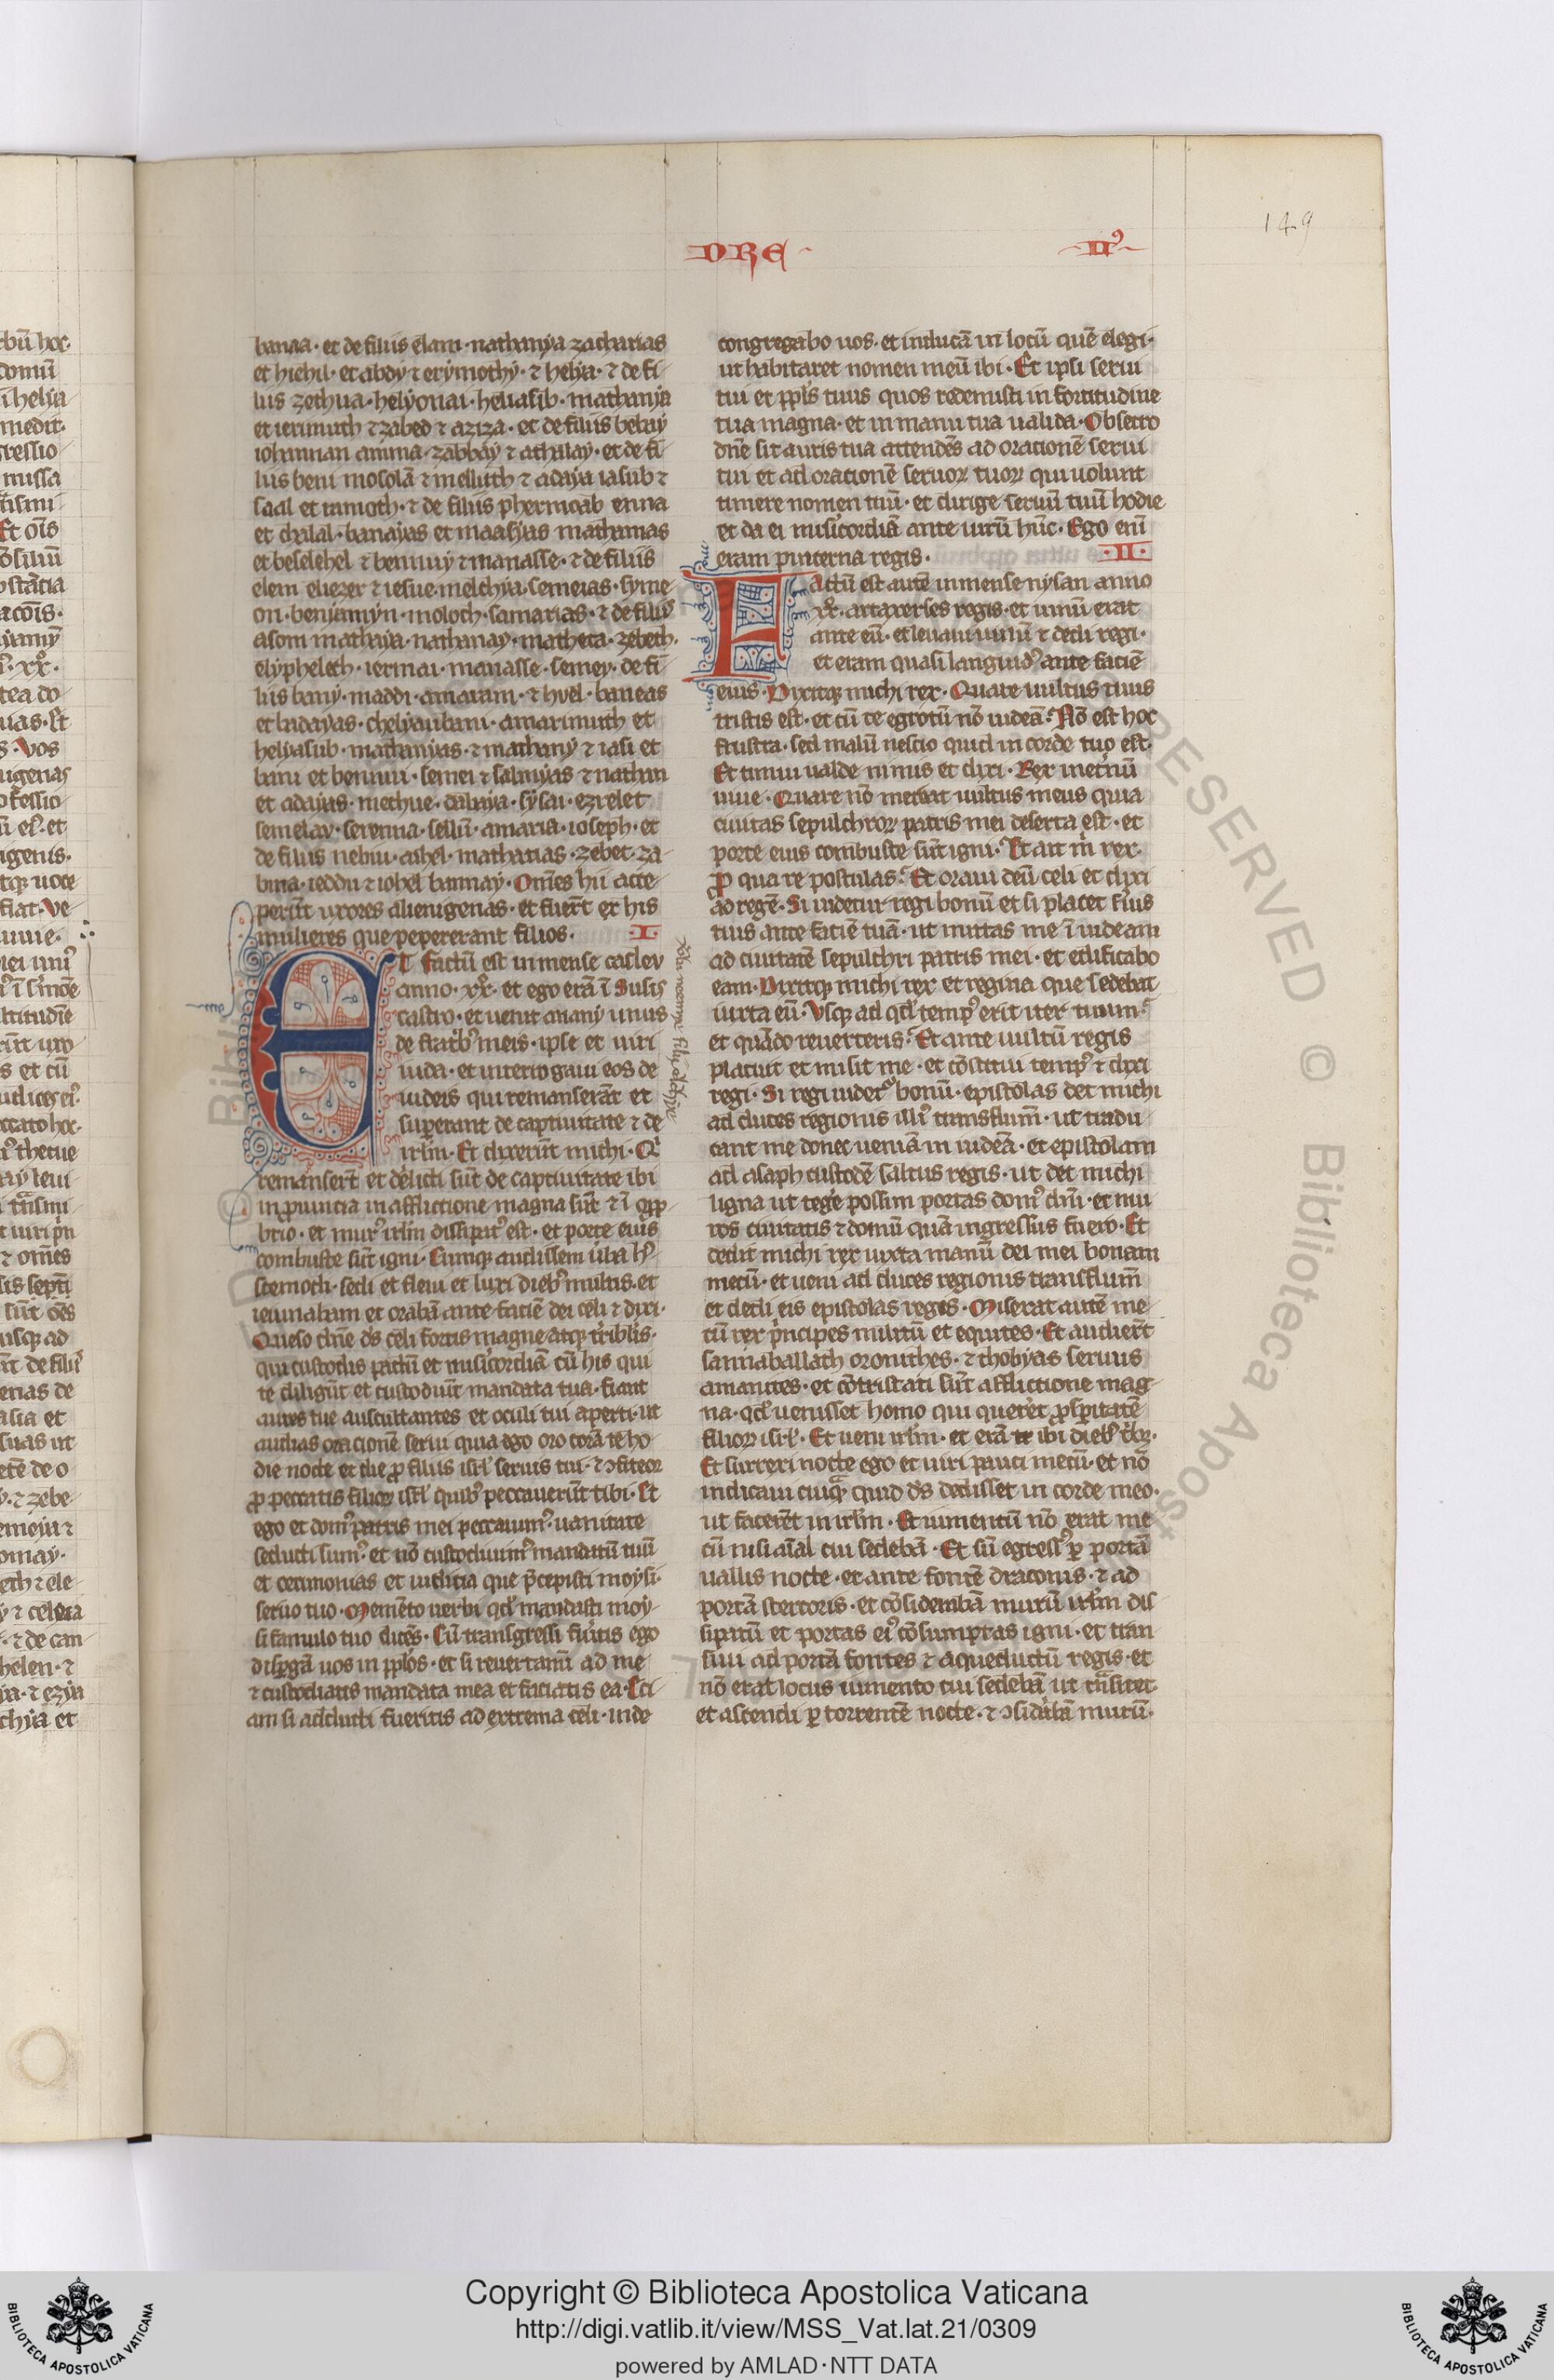 DRE
II⁹
149
banaa · et de filiis elam · nathanya zacharias
et hiehil · et abdy ⁊ erymothy · ⁊ helya · ⁊ de fi
liis zethua · helyonai · heliasib · mathanya
et ierimuth ⁊ zabed ⁊ aziza · et de filiis bebay
iohannan anima · zabbay ⁊ athalay · et de fi
liis beni mosolā ⁊ mellucth ⁊ adaya iasub ⁊
saal et ramoth · ⁊ de filiis phermoab enna
et chalal · banayas et maasyas mathanias
et beselehel ⁊ bennuy ⁊ manasse · ⁊ de filiis
elem eliezer ⁊ iesue melchya · semeias · syme
on · benyamyn · moloch · samarias · ⁊ de filiis
asom mathaya · nathanay · matheta · zebeth ·
elyphelech · iermai · manasse · semey · de fi
liis bany · maddi · amaram · ⁊ hvel · baneas
et badayas · chelyaubani · amarimuth et
helyasub · mathanyas · ⁊ mathany ⁊ iasi et
bani et bennui · semei ⁊ salmyas ⁊ nathan
et adayas · methue · dabaya · sysai · ezrelet
semelav · serenna · sellū · amaria · ioseph · et
de filiis nebiu · aihel · mathatias · zebet · za
bina · ieddu ⁊ iohel bannay · Om̄es hii acce
per̄ut uxores alienigenas · et fuer̄t ex his
mulieres que pepererant filios · I ·
ET factū est in mense casleu
anno · xx̊ · et ego erā ī Susis
castro · et uenit anany unus
de fratrib᷒ meis · ipse et uiri
iuda · et interrogaui eos de
iudeis qui remanserāt et
superant de captiuitate ⁊ de
irl̄m · Et dixerūt michi · Q̇
remanser̄t et delicti sūt de captiuitate ibi
in prouincia in afflictione magna sūt ⁊ ī opp
brio · et mur᷒ irl̄m dissipat᷒ est · et porte eius
combuste sūt igni · Cumq; audissem ūba h᷒
scemodi · sedi et fleui et luxi dieb᷒ multis · et
ieiunabam et orabā ante faciē dei celi ⁊ dixi ·
Queso dn̄e ds̄ celi fortis magne atq; t̄ribilis ·
qui custodis pactū et mis̄icordiā cū his qui
te diligūt et custodiūt mandata tua · fiant
aures tue auscultantes et oculi tui aperti · ut
audias orationē serui quia ego oro corā te ho
die nocte et die p̱ filiis isrl̄ seruis tui · ⁊ ↄfiteor
p̱ peccatis filioꝝ isrl̄ quib᷒ peccauerūt tibi · Et
ego et dom᷒ patris mei peccauim᷒ · uanitate
seducti sum᷒ · et nō custodiuim᷒ mandatū tuū
et cerimonias et iudicia que p̄cepisti moysi ·
seruo tuo · Memēto uerbi qd̄ mandasti moy
si famulo tuo dicēs · Cū transgressi fu̇itis ego
disp̱gā uos in pp̄los · et si reuertam̄ ad me
⁊ custodiatis mandata mea et faciatis ea · Eci
am si adducti fueritis ad extrema celi · inde
congregabo uos · et inducā in locū quē elegi ·
ut habitaret nomen meū ibi · Et ipsi serui
tui et ppl̄s tuus quos redemisti in fortitudine
tua magna · et in manu tua ualida · Obsecro
dn̄e sit auris tua attendēs ad orationē serui
tui et ad orationē seruoꝝ tuoꝝ qui uolunt
timere nomen tuū · et dirige seruū tuū hodie
et da ei mis̄icordiā ante uirū hūc · Ego enī
eram pincerna regis · II ·
Factū est autē in mense nysan anno
xx̊ · artaxerses regis · et uinū erat
ante eū · et leuaui uinū ⁊ dedi regi ·
et eram quasi languid᷒ ante faciē
eius · Dixitq; michi rex · Quare uultus tuus
tristis est · et cū te egrotū nō uideā · Nō est hoc
frustra · sed malū nescio quid in corde tuo est ·
Et timui ualde nimis et dixi · Rex inet̄nū
uiue · Quare nō mereat uultus meus quia
ciuitas sepulchroꝝ patris mei deserta est · et
porte eius combuste sūt igni · Et ait m̄ rex ·
P̱ qua re postulas · Et oraui deū celi et dixi
ad regē · Si uidetur regi bonū et si placet s̄uus
tuus ante faciē tuā · ut mittas me ī iudeam
ad ciuitatē sepulchri patris mei · et edificabo
eam · Dixitq; michi rex et regina que sedebat
iuxta eū · Usq; ad qd̄ temp᷒ erit iter tuum ·
et quādo reuerteris · Et ante uultū regis
placuit et misit me · et cōstitui temp᷒ ⁊ dixi
regi · Si regi uidet᷒ bonū · epistolas det michi
ad duces regionis illi᷒ transflum̄ · ut tradu
cant me donec ueniā in iudeā · et epistolam
ad asaph custodē saltus regis · ut det michi
ligna ut tege̍ possim portas dom᷒ dn̄i · et mu
ros ciuitatis ⁊ domū quā ingressus fuero · Et
dedit michi rex iuxta manū dei mei bonam
mecū · et ueni ad duces regionis transflum̄
et dedi eis epistolas regis · Miserat autē me
cū rex p̍ncipes militū et equites · Et audier̄t
sannaballath oronithes · ⁊ thobyas seruus
amanites · et cōtristati sūt afflictione mag
na · qd̄ uenisset homo qui quere̍t p̱speritatē
filioꝝ isrl̄ · Et ueni irl̄m · et erā ibi dieb᷒ tb᷒ ·
Et surrexi nocte ego et uiri pauci mecū · et nō
indicaui cuiq̄ quid ds̄ dedisset in corde meo ·
ut facerēt in irl̄m · Et iumentū nō erat me
cū nisi aīal cui sedebā · Et sū egress᷒ ꝑ portā
uallis nocte · et ante fontē draconis · ⁊ ad
portā stercoris · et cōsiderabā murū irl̄m dis
sipatū et portas ei᷒ cōsumptas igni · et tran
siui ad portā fontis ⁊ aqueductū regis · et
nō erat locus iumento cui sedebā ut trāsiret
et ascendi ꝑ torrentē nocte · ⁊ ↄsiderabā murū ·
Copyright © Biblioteca Apostolica Vaticana
http://digi.vatlib.it/view/MSS_Vat.lat.21/0309
powered by AMLAD · NTT DATA
BIBLIOTECA APOSTOLICA VATICANA
BIBLIOTECA APOSTOLICA VATICANA